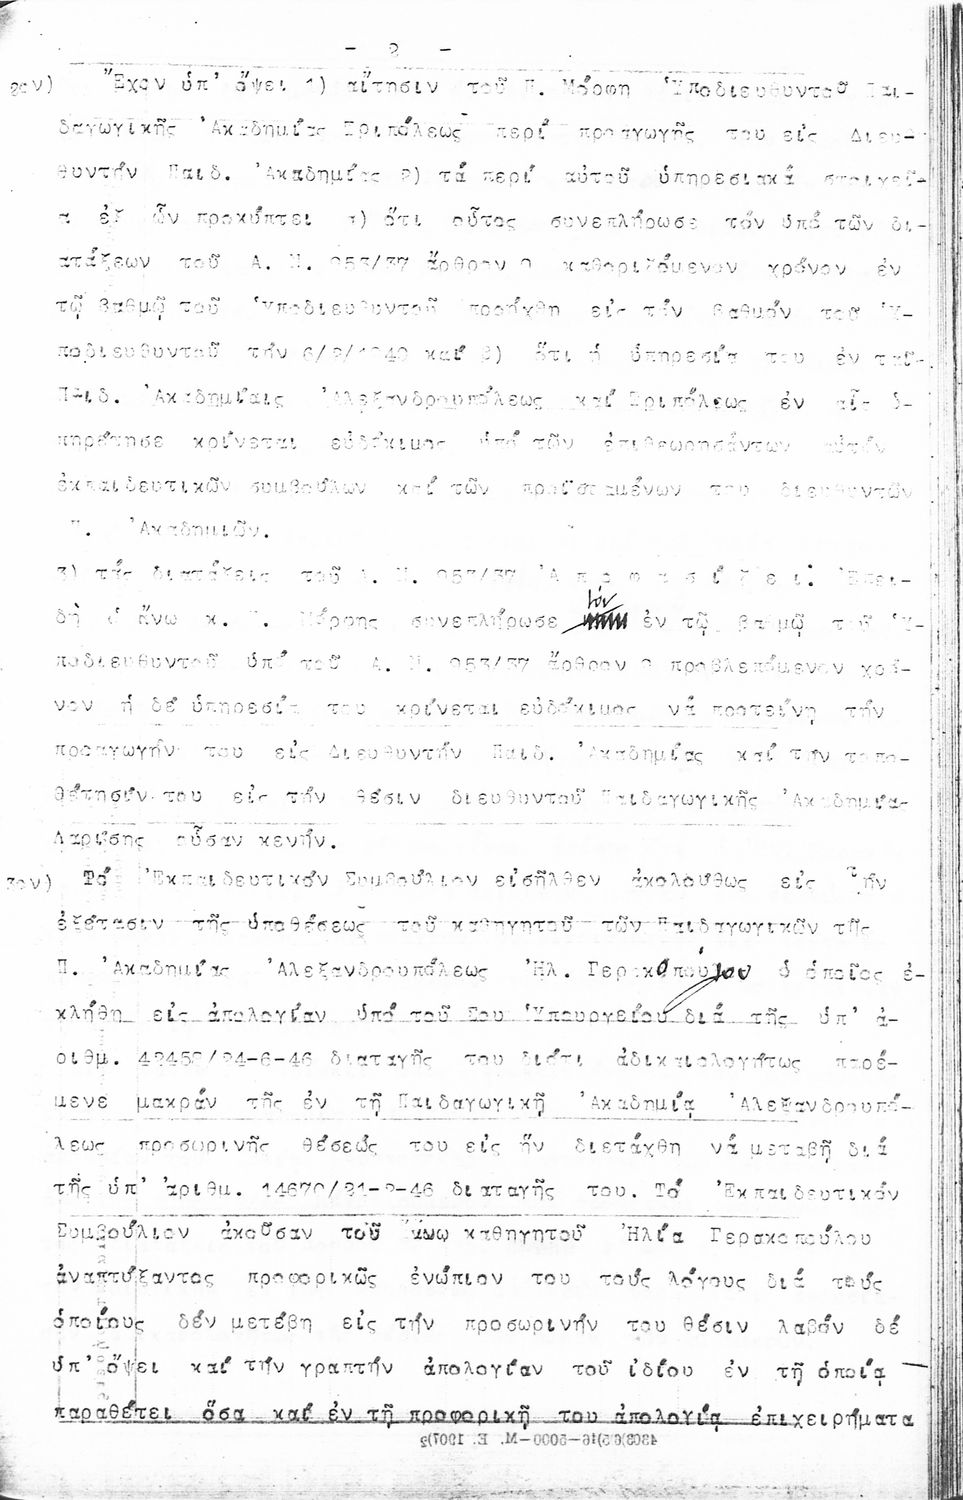 - 2 -
2ον) Ἔχον ὑπ' ὄψει 1) αἴτησιν τοῦ Π. Μόρφη Ὑποδιευθυντοῦ Παι-
δαγωγικῆς Ἀκαδημίας Τριπόλεως περί προαγωγῆς του εἰς Διευ-
θυντήν Παιδ. Ἀκαδημίας 2) τά περί αὐτοῦ ὑπηρεσιακά στοιχεῖ-
α ἐξ ὧν προκύπτει α) ὅτι οὗτος συνεπλήρωσε τόν ὑπό τῶν δι-
ατάξεων τοῦ Α. Ν. 953/37 ἄρθρον 2 καθοριζόμενον χρόνον ἐν
τῷ βαθμῷ τοῦ Ὑποδιευθυντοῦ προήχθη εἰς τήν βαθμόν τοῦ Ὑ-
ποδιευθυντοῦ τήν 6/2/1940 καί β) ὅτι ἡ ὑπηρεσία του ἐν ταῖ-
Παιδ. Ἀκαδημίαις Ἀλεξανδρουπόλεως καί Τριπόλεως ἐν αἷς ὑ-
πηρέτησε κρίνεται εὐδόκιμος ὑπό τῶν ἐπιθεωρησάντων αὐτόν
ἐκπαιδευτικῶν συμβούλων καί τῶν προϊσταμένων του διευθυντῶν
Π. Ἀκαδημιῶν.
3) τάς διατάξεις τοῦ Α. Ν. 953/37 Ἀ π ο φ α σ ί ζ ε ι: Ἐπει-
δή ὁ ἄνω κ. Π. Μόρφης συνεπλήρωσε τόν ἐν τῷ βαθμῷ τοῦ Ὑ-
ποδιευθυντοῦ ὑπό τοῦ Α. Ν. 953/37 ἄρθρον 2 προβλεπόμενον χρό-
νον ἡ δέ ὑπηρεσία του κρίνεται εὐδόκιμος νά προτείνῃ τήν
προαγωγήν του εἰς Διευθυντήν Παιδ. Ἀκαδημίας καί τήν τοπο-
θέτησίν του εἰς τήν θέσιν διευθυντοῦ Παιδαγωγικῆς Ἀκαδημίας
Λαρίσης οὖσαν κενήν.
3ον) Τό Ἐκπαιδευτικόν Συμβούλιον εἰσῆλθεν ἀκολούθως εἰς τήν
ἐξέτασιν τῆς ὑποθέσεως τοῦ καθηγητοῦ τῶν Παιδαγωγικῶν τῆς
Π. Ἀκαδημίας Ἀλεξανδρουπόλεως Ἠλ. Γερακοπούλου ὁ ὁποῖος ἐ-
κλήθη εἰς ἀπολογίαν ὑπό τοῦ Σου Ὑπουργείου διά τῆς ὑπ' ἀ-
ριθμ. 42452/24-6-46 διαταγῆς του διότι ἀδικαιολογήτως παρέ-
μενε μακράν τῆς ἐν τῇ Παιδαγωγικῇ Ἀκαδημίᾳ Ἀλεξανδρουπό-
λεως προσωρινῆς θέσεώς του εἰς ἥν διετάχθη νά μεταβῇ διά
τῆς ὑπ' ἀριθμ. 14670/21-2-46 διαταγῆς του. Τό Ἐκπαιδευτικόν
Συμβούλιον ἀκοῦσαν τοῦ ἄνω καθηγητοῦ Ἠλία Γερακοπούλου
ἀναπτύξαντος προφορικῶς ἐνώπιον του τούς λόγους διά τούς
ὁποίους δέν μετέβη εἰς τήν προσωρινήν του θέσιν λαβόν δέ
ὑπ' ὄψει καί τήν γραπτήν ἀπολογίαν τοῦ ἰδίου ἐν τῇ ὁποίᾳ
παραθέτει ὅσα καί ἐν τῇ προφορικῇ του ἀπολογίᾳ ἐπιχειρήματα